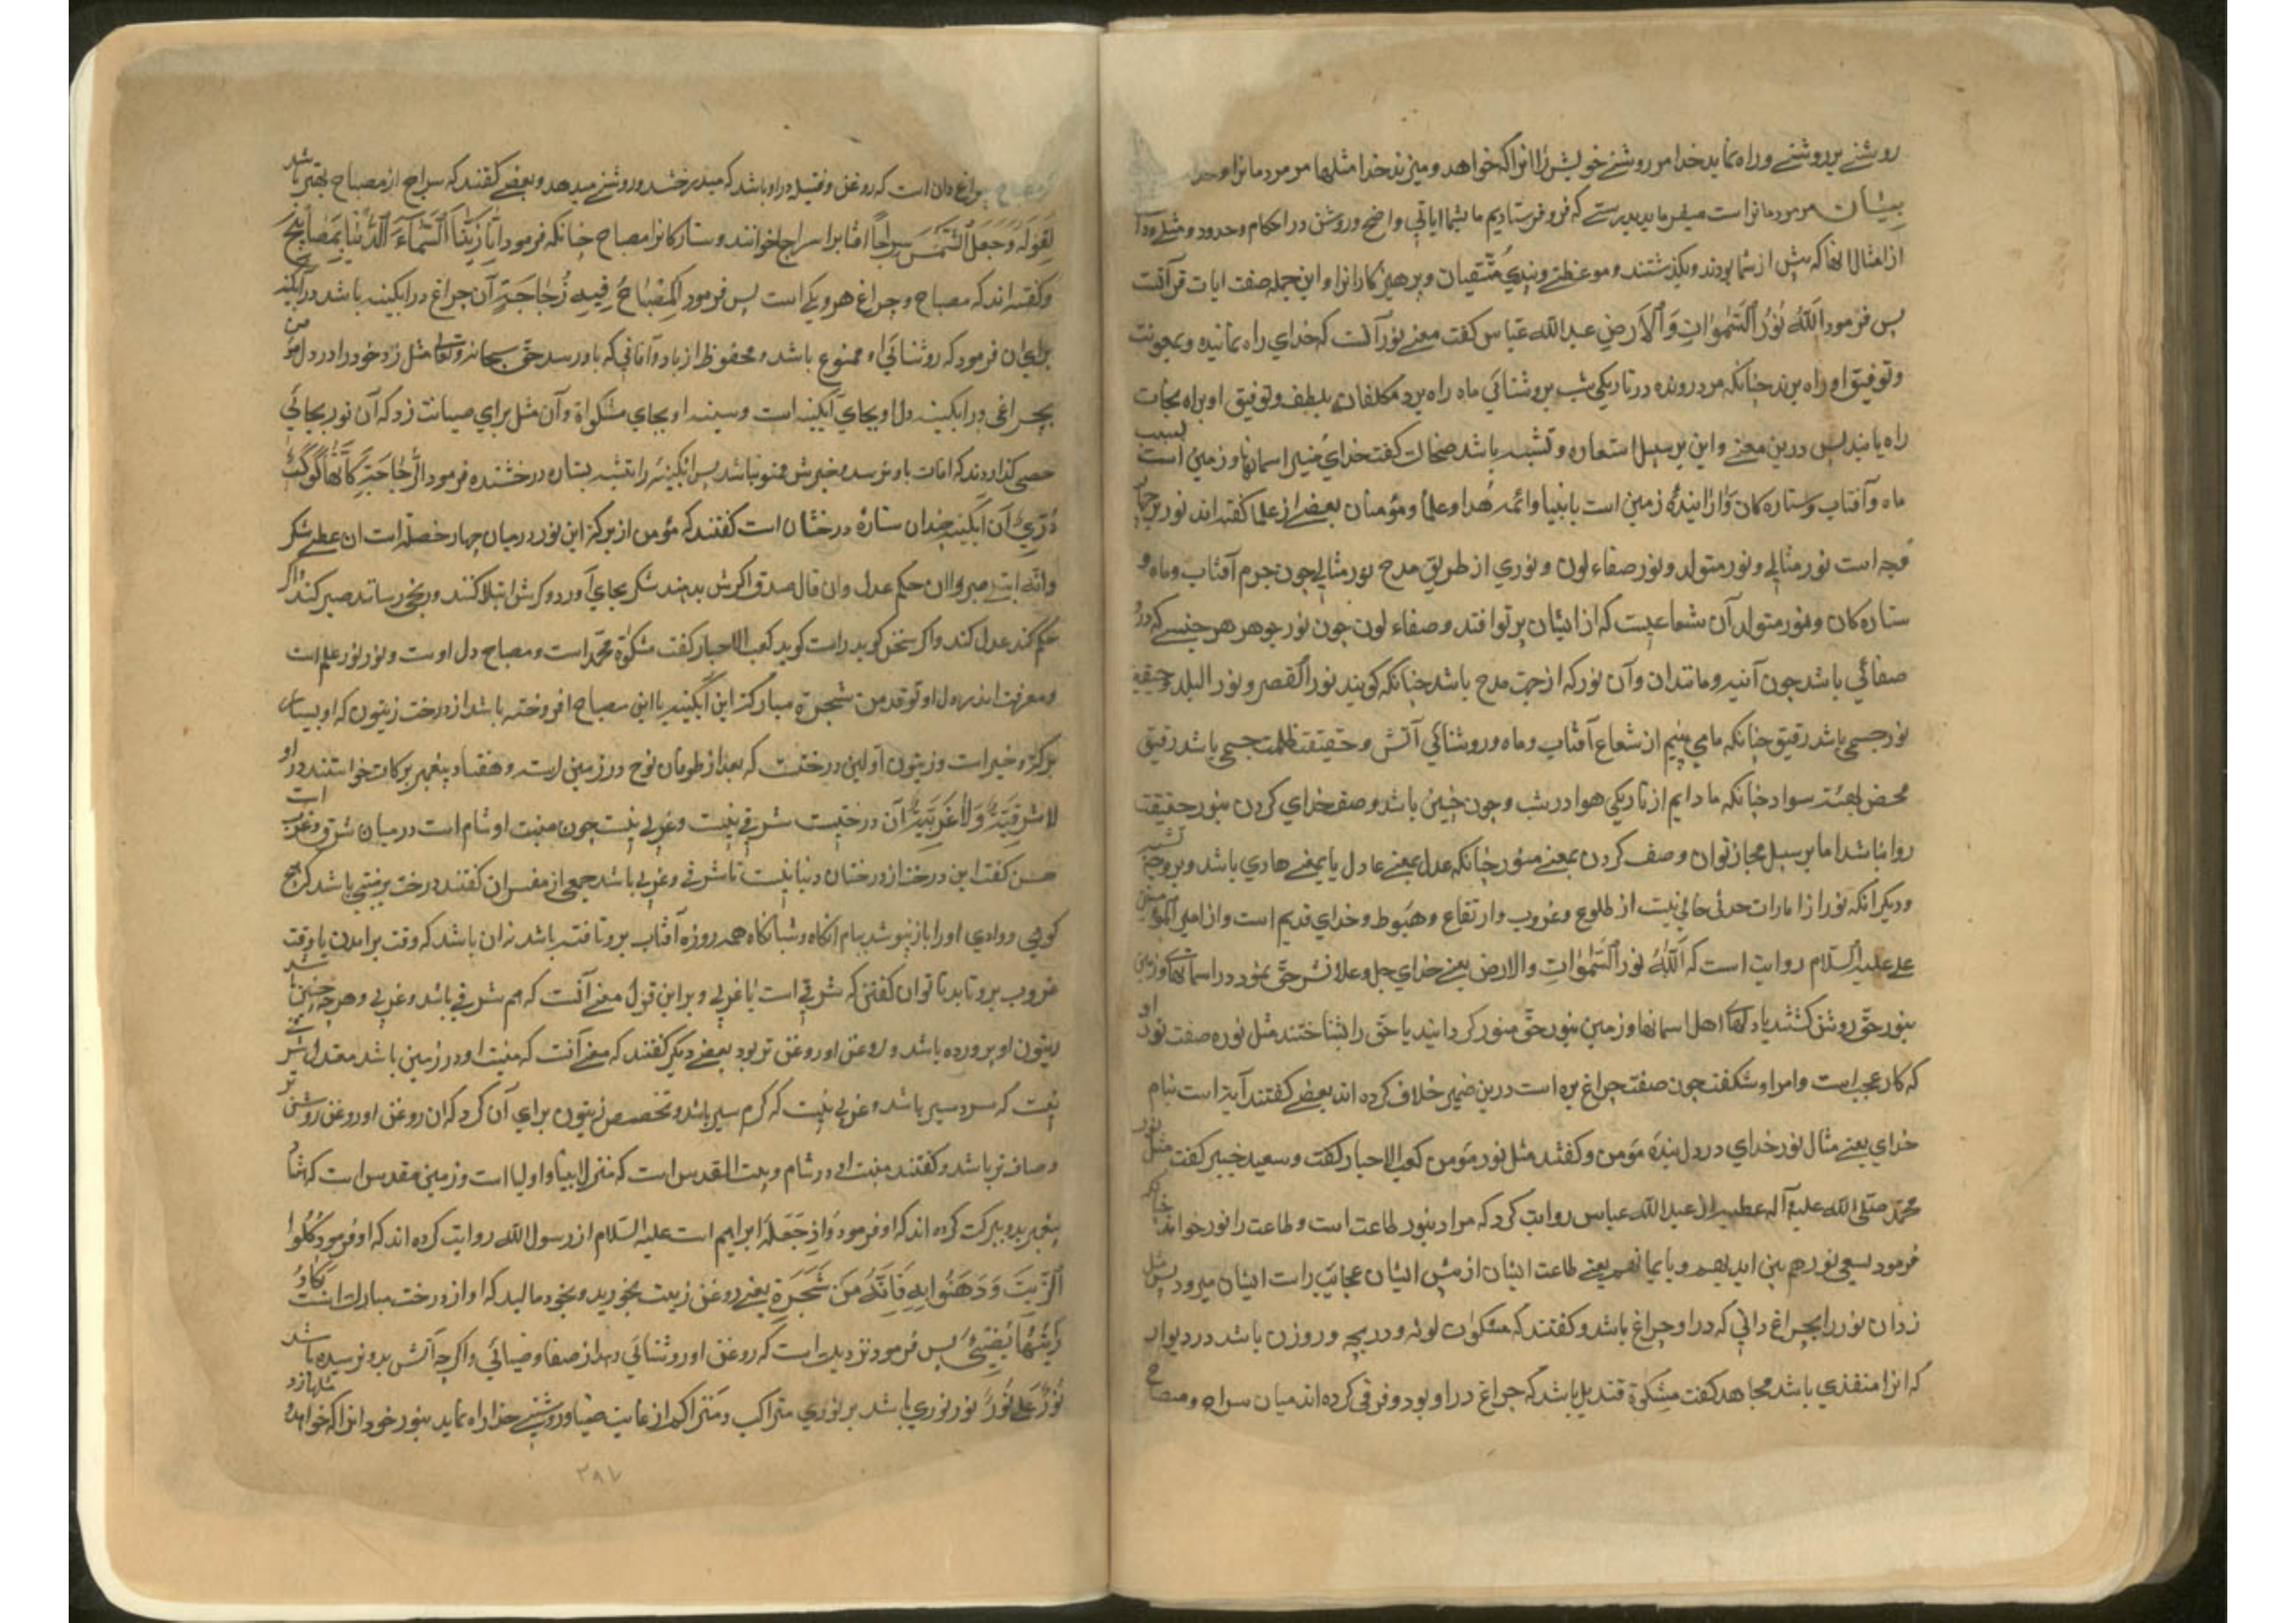 روشنے بر روشنے و راه نماید خدا مر روشنے خویش را انرا که خواهد و میزند خدا مثلها مر مردمانرا و خدا
بیان مر مردمانرا است میفرماید بدرستے که فرو فرستادیم ما بشما ایاتی واضح و روشن در احکام و حدود و مثلے
از امثال انها که پیش از شما بودند و بگذشتند و موعظتے و پندی متّقیان و پرهیزکارانرا و این جمله صفت ایات قرآنست
پس فرمود اَللّٰهُ نُورُ السَّمٰواتِ وَالْاَرضِ عبدالله عبّاس کفت معنے نور آنست که خدای راه نماینده و بمعونت
و توفیق او راه برند چنانکه مرد رونده در تاریکی شب بروشنائی ماه راه برد مکلفان بلطف و توفیق او براه نجات
راه یابند پس درین معنے و این بر سبیل استعاره و تشبیه باشد ضحاک کفت خدای منیر اسمانها و زمین است بسبب
ماه و آفتاب و ستاره کان و ارایندهٔ زمین است بانبیا و ائمهٔ هُدا و علما و مؤمنان بعضے از علما کفته اند نور بر چهار
وجه است نور مثالے و نور متولد و نور صفاء لون و نوری از طریق مدح نور مثالی چون جرم آفتاب و ماه و
ستاره کان و نور متولد آن شعاعیست که از ایشان برتو افتد و صفاء لون چون نور جوهر هر جنسے که در او
صفائی باشد چون آئینه و مانند ان و آن نور که از جهت مدح باشد چنانکه کویند نور القصر و نور البلد و حقیقة
نور جسمی باشد رقیق چنانکه ما می بینیم از شعاع آفتاب و ماه و روشنائی آتش و حقیقت ظلمت جسمی باشد رقیق
محض بهیئة سواد چنانکه ما دایم از تاریکی هوا در شب و چون چنین باشد وصف خدای کردن بنور حقیقت
روا نباشد اما بر سبیل مجاز توان وصف کردن بمعنے منور چنانکه عدل بمعنے عادل یا بمعنے هادی باشد و بر وجه تشبیه
و دیکر انکه نور از امارات حدثی خالی نیست از طلوع و غروب و ارتفاع و هبوط و خدای قدیم است و از امیر المؤمنین
علے علیه السّلام روایت است که اَللّٰهُ نُورُ السَّمٰواتِ والارض یعنے خدای جل و علا نشر حقّ بمود در اسمانها و زمین
بنور حقّ روشن کشتند یا دلهای اهل اسمانها و زمین بنور حقّ منور کردانید یا حقّ را بشناختند مثل نوره صفت نور او
که کار عجب است و امر او شکفت چون صفت چراغ بره است درین ضمیر خلاف کرده اند بعضے کفتند آیة است بنام
خدای یعنے مثال نور خدای در دل بنده مؤمن و کفتند مثل نور مؤمن کعب الاحبار کفت و سعید جبیر کفت مثل نور
محمّد صلّی الله علیه و آله عطیه از عبدالله عباس روایت کرد که مراد بنور طاعت است و طاعت را نور خواند چنانکه
فرمود یسعی نورهم بین ایدیهم و بایمانهم یعنے طاعت ایشان از پیش ایشان بجانب راست ایشان میرود پس مثل
زد ان نور را بچراغ دانی که در او چراغ باشد و کفتند که مشکوة لوله و دریچه و روزن باشد در دیوار
که انرا منفذی باشد مجاهد کفت مشکوة قندیل باشد که چراغ در او بود و فرقی کرده اند میان سراج و مصباح
که مصباح چراغ دان است که روغن و فتیله در او باشد که میدرخشد و روشنے میدهد و بعضے کفتند که سراج از مصباح بهتر باشد
لقوله وَجَعَلَ الشَّمْسَ سِرَاجًا افتابرا سراج خوانند و ستارکانرا مصباح چنانکه فرمود اِنّا زَیَّنَّا السَّمَآءَ الدُّنْیَا بِمَصَابِیحَ
و کفته اند که مصباح و چراغ هر دو یکی است پس فرمود اَلْمِصْبَاحُ فِیهِ زُجَاجَةٍ آن چراغ در ابکینه باشد در آبکینه
برای ان فرمود که روشنائی او ممنوع باشد و محفوظ از باد و آفاتی که باو رسد حقّ سبحانه و تعالی مثل زد خود را در دل مؤمن
بچراغی در ابکینه دل او بجای آبکینه است و سینه او بجای مشکواة و آن مثل برای صیانت زد که آن نور بجائی
حصی کذاردند که افات باو نرسد و خیرش ممنوع نباشد پس ابکینه را تشبیه بستاره درخشنده فرمود اَلزُّجَاجَةُ کَأَنَّهَا کَوْکَبٌ
دُرِّیٌّ آن ابکینه چندان ستارهٔ درخشان است کفتند که مؤمن از برکة این نور در میان چهار خصلة است ان عطے شکر
وانه ابتلے صبر و اان حکم عدل و ان قال صدق اکرش بدهند شکر بجای آورد و کرش ابتلا کنند و رنجی رسانند صبر کند و اکر
حکم کند عدل کند و اکر سخن کوید راست کوید کعب الاحبار کفت مشکوة محمّد است و مصباح دل اوست و نور نور علم است
و معرفت اندر دل او توقد من شجرة مبارکة این آبکینه یا این مصباح افروخته باشد از درخت زیتون که او بسیار
برکة و خیر است و زیتون اولین درختست که بعد از طوفان نوح در زمین رست و هفتاد پیغمبر برکات خواستند در او
لَا شَرْقِیَّةٍ وَلَا غَرْبِیَّةٍ آن درختیست شرقی نیست و غربی نیست چون منبت او شام است در میان شرق و غرب است
حسن کفت این درخت از درختان دنیا نیست تا شرقی و غربی باشد جمعی از مفسران کفتند درخت برمنتی باشد که هیچ
کوهی و وادی او را باز نپوشد بیام انکاه و شبانکاه همه روزه آفتاب برو تافته باشد نه ان باشد که وقت برامدن یا وقت
غروب برو تابد تا توان کفتن که شرقی است یا غربی و بر این قول معنے آنست که هم شرقی باشد و غربی و هر چه چنین باشد
زیتون او پرورده باشد و روغن او روغن تر بود بعضے دیکر کفتند که معنے آنست که منبت او در زمین باشد معتدل شرقی
نیست که سرد سیر باشد و غربی نیست که کرم سیر باشد و تخصیص زیتون برای آن کرد که ان روغن او روغن روشن تر
و صاف تر باشد و کفتند منبت او در شام و بیت المقدس است که منزل انبیا و اولیا است و زمین مقدس است که
پیغمبر بدو برکت کرده اند که او فرمود وَاِذْ جَعَلَهُ ابراهیم است علیه السّلام از رسول الله روایت کرده اند که او فرمود کُلُوا
الزَّیتَ وَدَهِّنُوا بِهِ فَاِنَّهُ مِنْ شَجَرَةٍ یعنے روغن زیت بخورید و بخود مالید که او از درخت مبارک است یَکَادُ
زَیْتُهَا یُضِیٓءُ پس فرمود نزدیک است که روغن او روشنائی دهد از صفا و ضیائی و اکر چه آتش بدو نرسیده باشد
نُورٌ عَلٰی نُورٍ نور نوری باشد بر نوری متراکب و متراکم از غایت ضیا و روشنے خدا راه نماید بنور خود انرا که خواهد و مثلها زد
۲۸۷